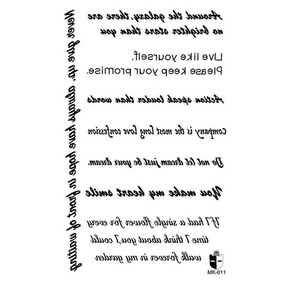 Around the galaxy, there are
no brighter stars than you
Live like yourself.
Please keep your promise.
Action speak louder than words
Company is the most love long confession
Do not let dream just be your dream.
You make my heart smile
If I had a single flower for every
time I think about you, I could
walk forever in my garden
Never give up, always have hope in front of waiting
MK-011